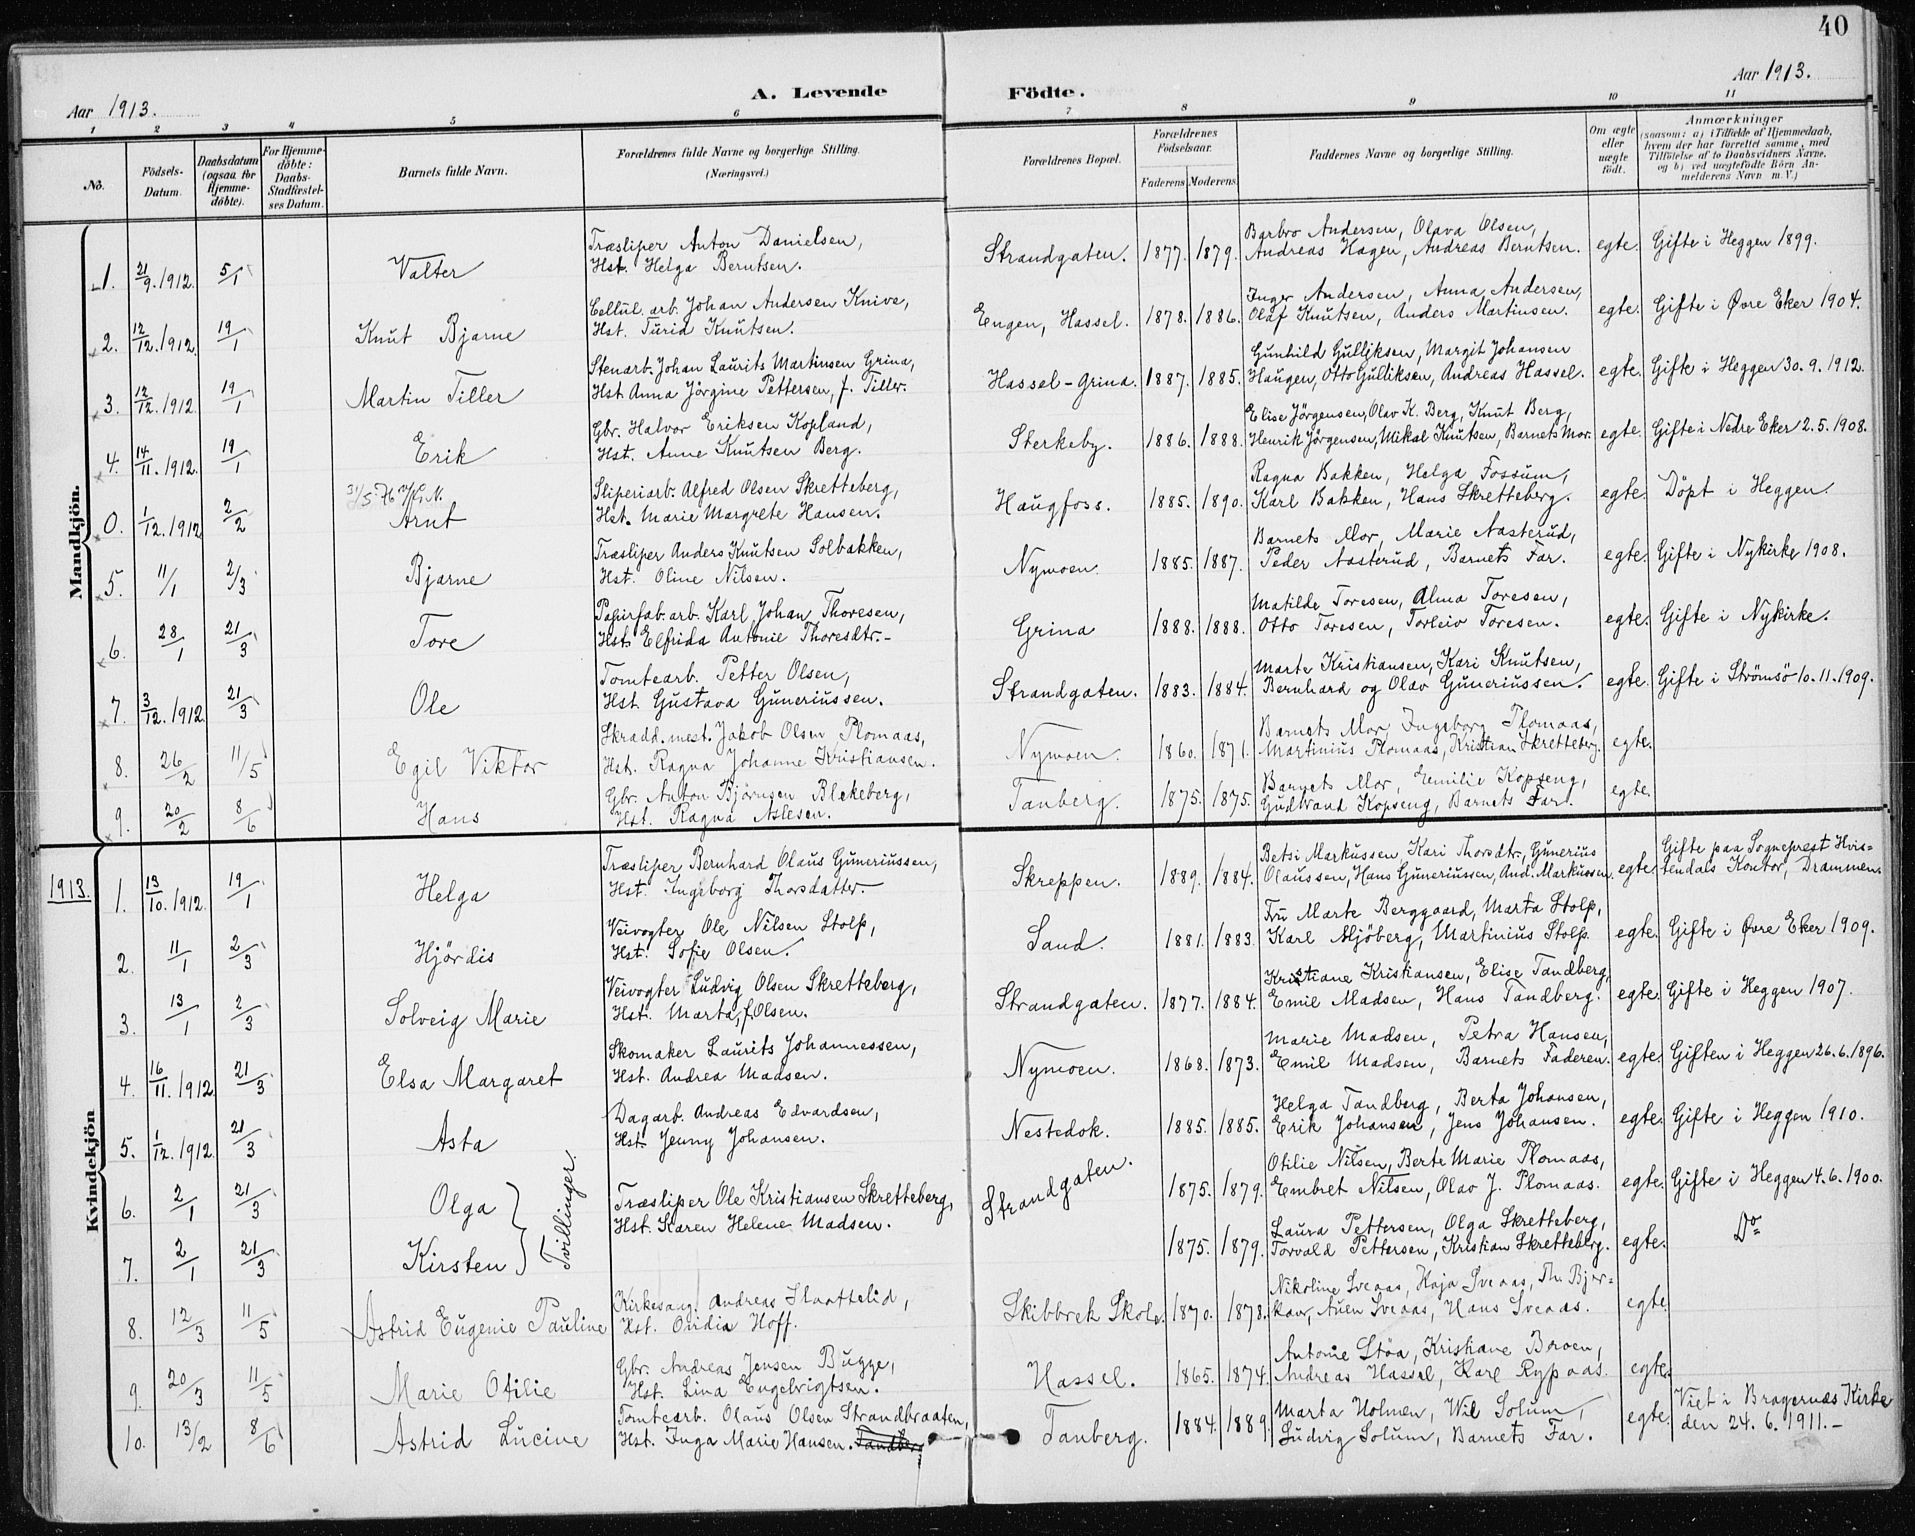 40
Aar 1913.
A. Levende Födte.
Aar 1913.
1 2 3 4 5 6 7 8 9 10 11
No.
Födsels-Datum.
Daabsdatum (ogsaa for Hjemme-döbte).
For Hjemme-döbte: Daabs-Stadfæstel-ses Datum.
Barnets fulde Navn.
Forældrenes fulde Navne og borgerlige Stilling.
(Næringsvei.)
Forældrenes Bopæl.
Forældrenes Födselsaar.
Faderens. Moderens.
Faddernes Navne og borgerlige Stilling.
Om ægte eller uægte födt.
Anmærkninger
(saasom: a) i Tilfælde af Hjemmedaab,
hvem der har forrettet samme, med
Tilföielse af to Daabsvidners Navne,
og b) ved uægtefödte Börn An-
melderens Navn m. V.)
Mandkjön.
Træsliper Anton Danielsen, Barbro Andersen, Olava Olsen,
1. 21/9. 1912. 5/1 Valter Hst. Helga Berntsen. Strandgaten. 1877. 1879. Andreas Hagen, Andreas Berntsen. egte. Gifte i Heggen 1899.
Cellul. arb. Johan Andersen Knive, Inger Andersen, Anna Andersen,
2. 12/12. 1912. 19/1 Knut Bjarne Hst. Turid Knutsen. Engen, Hassel. 1878. 1886. Olaf Knutsen, Anders Martinsen. egte. Gifte i Øvre Eker 1904.
Stenarb. Johan Laurits Martinsen Grina, Gunhild Gulliksen, Margit Johansen
3. 12/12. 1912. 19/1 Martin Tiller Hst. Anna Jörgine Pettersen, f. Tiller. Hassel-Grina. 1887. 1885. Haugen, Otto Gulliksen, Andreas Hassel. egte. Gifte i Heggen 30. 9. 1912.
Gbr. Halvor Eriksen Kopland, Elise Jörgensen, Olav K. Berg, Knut Berg,
4. 14/11. 1912. 19/1 Erik Hst. Anne Knutsen Berg. Sterkeby. 1886. 1888. Henrik Jörgensen, Mikal Knutsen, Barnets Mor. egte. Gifte i Nedre Eker 2. 5. 1908.
Sliperiarb. Alfred Olsen Skretteberg, Ragna Bakken, Helga Fossum,
0. 1/12. 1912 2/2 Arnt Hst. Marie Margrete Hansen. Haugfoss. 1885. 1890. Karl Bakken, Hans Skretteberg. egte. Döpt i Heggen.
Træsliper Anders Knutsen Solbakken, Barnets Mor, Marie Aasterud,
5. 11/1 2/3 Bjarne Hst. Oline Nilsen. Nymoen. 1885. 1887. Peder Aasterud, Barnets Far. egte. Gifte i Nykirke 1908.
Papirfab. arb. Karl Johan Thoresen, Matilde Toresen, Alma Toresen,
6. 28/1 21/3 Tore Hst. Elfrida Antonie Thoresdtr.- Grina 1888. 1888. Otto Toresen, Torleiv Toresen. egte. Gifte i Nykirke.
Tomtearb. Petter Olsen, Marte Kristiansen, Kari Knutsen,
7. 3/12. 1912 21/3 Ole Hst. Gustava Guneriussen. Strandgaten. 1883. 1884. Bernhard og Olav Guneriussen. egte. Gifte i Strömsö 10. 11. 1909.
Skradd. mest. Jakob Olsen Plomaas, Barnets Mor, Ingeborg Plomaas,
8. 26/2 11/5 Egil Viktor Hst. Ragna Johanne Kristiansen. Nymoen. 1860. 1871. Martinius Plomaas, Kristian Skretteberg. egte.
Gbr. Anton Björnsen Blekeberg, Barnets Mor, Emilie Kopseng,
9. 20/2 8/6 Hans Hst. Ragna Aslesen. Tanberg. 1875. 1875. Gudbrand Kopseng, Barnets Far. egte.
1913.
Kvindekjön
Træsliper Bernhard Olaus Guneriussen, Betsi Markussen, Kari Thorsdtr., Gunerius Gifte paa Sogneprest Hvis-
1. 13/10. 1912. 19/1 Helga Hst. Ingeborg Thorsdatter. Skreppen. 1889. 1884. Olaussen, Hans Guneriussen, And. Markussen. egte. tendals Kontor, Drammen.
Veivogter Ole Nilsen Stolp, Fru Marte Berggaard, Marta Stolp,
2. 11/1 2/3 Hjördis Hst. Sofie Olsen. Sand. 1881. 1883. Karl Mjöberg, Martinius Stolp. egte. Gifte i Øvre Eker 1909.
Veivogter Ludvig Olsen Skretteberg, Kristiane Kristiansen, Elise Tandberg,
3. 13/1 2/3 Solveig Marie Hst. Marta, f. Olsen. Strandgaten. 1877. 1884. Emil Madsen, Hans Tandberg. egte. Gifte i Heggen 1907.
Skomaker Laurits Johannessen, Marie Madsen, Petra Hansen,
4. 16/11. 1912 21/3 Elsa Margaret Hst. Andrea Madsen. Nymoen. 1868. 1873. Emil Madsen, Barnets Faderen. egte. Giften i Heggen 26. 6. 1896.
Dagarb. Andreas Edvardsen, Helga Tandberg, Berta Johansen,
5. 1/12. 1912. 21/3 Asta Hst. Jenny Johansen. Nestedok. 1885. 1885. Erik Johansen, Jens Johansen. egte. Gifte i Heggen 1910.
Otilie Nilsen, Berte Marie Plomaas,
6. 2/1 21/3 Olga Tvillinger. Træsliper Ole Kristiansen Skretteberg, Strandgaten. 1875. 1879. Embret Nilsen, Olav J. Plomaas. egte. Gifte i Heggen 4. 6. 1900.
Hst. Karen Helene Madsen. Laura Pettersen, Olga Skretteberg,
7. 2/1 21/3 Kirsten 1875. 1879. Torvald Pettersen, Kristian Skretteberg. egte. Do
Kirkesang. Andreas Slaattelid, Nikoline Sveaas, Haja Sveaas, Th. Bjer-
8. 12/3 11/5 Astrid Eugenie Pauline Hst. Ovidia Hoff. Skibbrek Skole. 1870. 1878. kaas, Auen Sveaas, Hans Sveaas. egte.
Gbr. Andreas Jensen Bugge, Antonie Stöa, Kristiane Boroen,
9. 20/3 11/5 Marie Otilie Hst. Lina Engebrigtsen. Hassel. 1865. 1874. Andreas Hassel, Karl Rypaas. egte.
Tomtearb. Olaus Olsen Strandbraaten, Marta Holmen, Wil Solum, Viet i Bragernæs Kirke
10. 13/2 8/6 Astrid Lucine Hst. Inga Marie Hansen. Tanberg. 1884. 1889. Ludvig Solum, Barnets Far. egte. den 24. 6. 1911.-